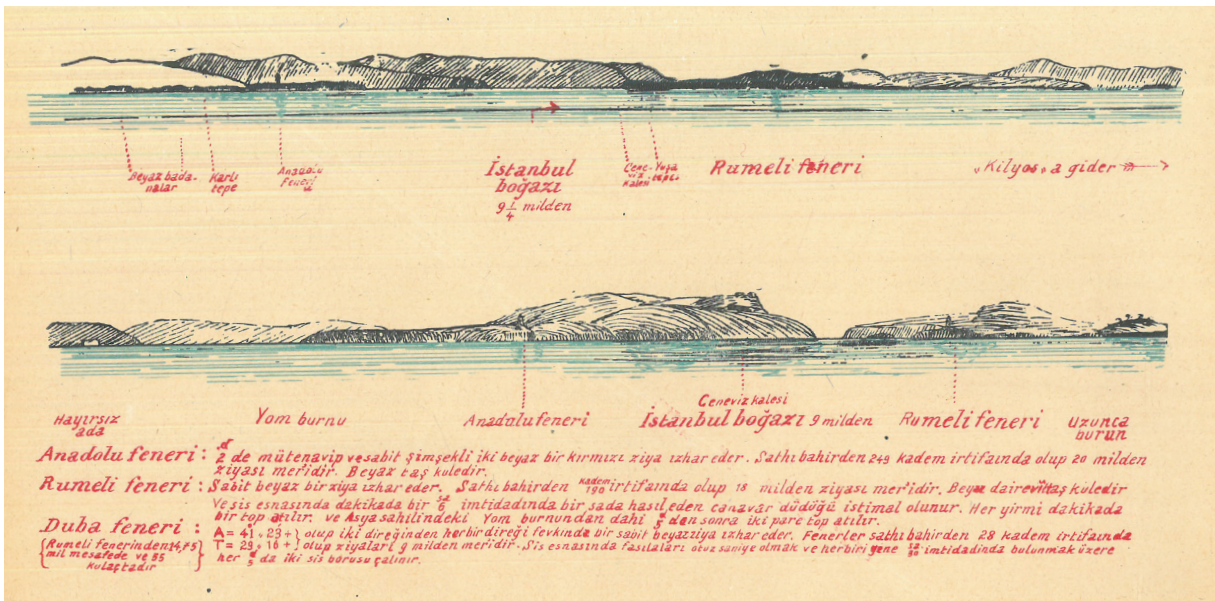 Beyaz bada-
nalar
Karlı
tepe
Anadolu
feneri
İstanbul
boğazı
9 1/4 milden
Cene-
viz
kalesi
Yuşa
tepesi
Rumeli feneri
„Kilyos„ a gider
Hayırsız
ada
Yom burnu
Anadolu feneri
Ceneviz kalesi
İstanbul boğazı 9 milden
Rumeli feneri
Uzunca
burun
Anadolu feneri : 2 d de mütenavip ve sabit şimşekli iki beyaz bir kırmızı ziya izhar eder. Sathı bahirden 249 kadem irtifaında olup 20 milden
ziyası mer'idir. Beyaz taş kuledir.
Rumeli feneri : Sabit beyaz bir ziya izhar eder. Sathı bahirden 190 kadem irtifaında olup 18 milden ziyası mer'idir. Beyaz dairevî taş kuledir
Ve sis esnasında dakikada bir 6 sa imtidadında bir sada hasıl eden canavar düdüğü istimal olunur. Her yirmi dakikada
bir top atılır. ve Asya sahilindeki Yom burnundan dahi 5 d den sonra iki pare top atılır.
Duba feneri :
(Rumeli fenerinden 14,75
mil mesafede ve 85
kulaçtadır
A = 41 . 23 + } olup iki direğinden herbir direği fevkinde bir sabit beyaz ziya izhar eder. Fenerler sathı bahirden 28 kadem irtifaında
T = 29 . 16 + } olup ziyaları 9 milden mer'idir. Sis esnasında fasılaları otuz saniye olmak ve herbiri gene imtidadında bulunmak üzere
her 5 d da iki sis borusu çalınır.